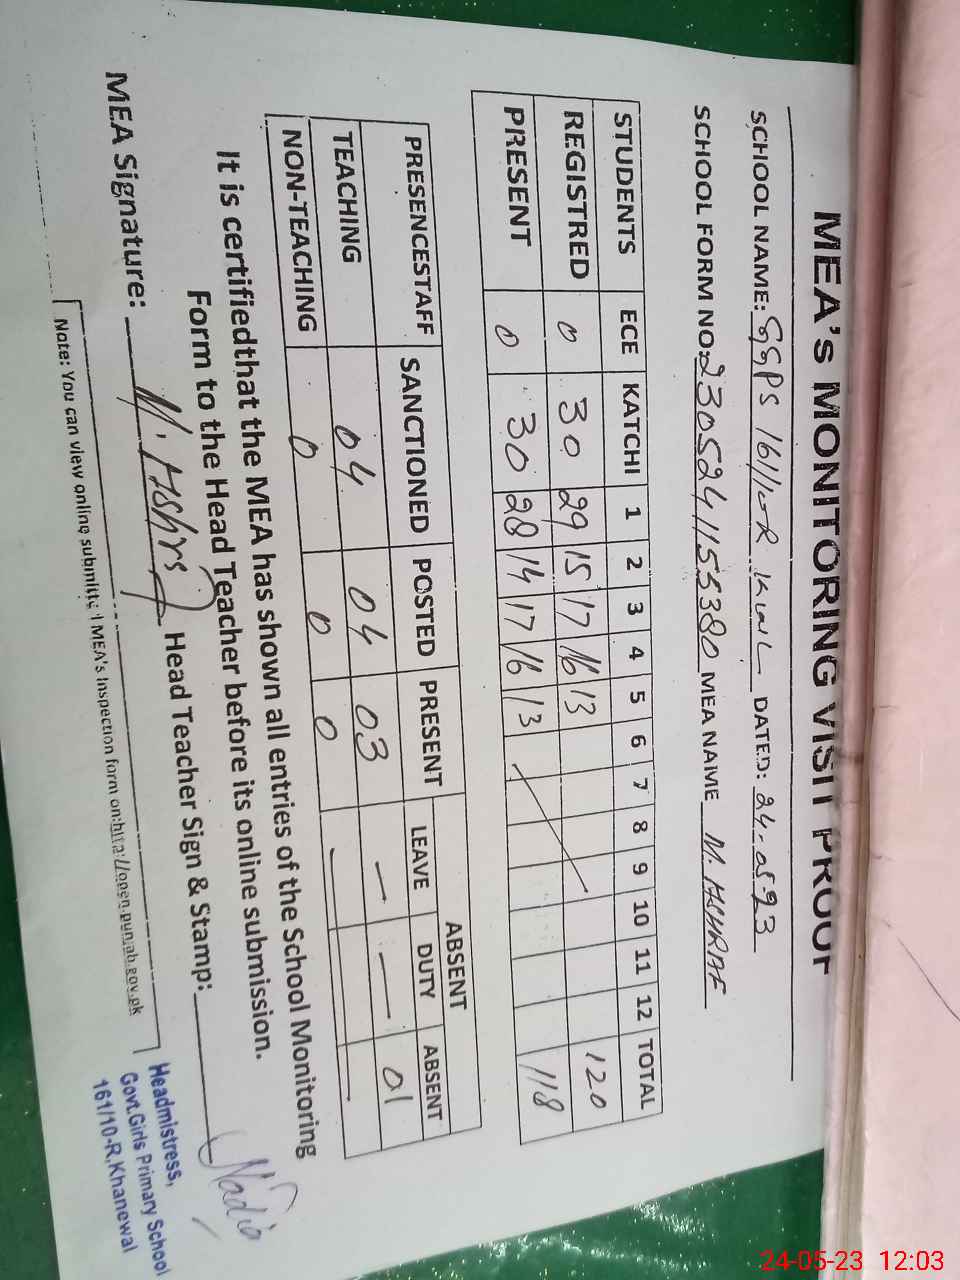 MEA's MONITORING VISIT PROOF
SCHOOL NAME: GGPS 161/10-R KWL DATED: 24-05-23
SCHOOL FORM NO: 2305241155380 MEA NAME M. ASHRAF
STUDENTS ECE KATCHI 1 2 3 4 5 6 7 8 9 10 11 12 TOTAL
REGISTRED 0 30 29 15 17 16 13 120
PRESENT 0 30 28 14 17 16 13 118
ABSENT
PRESENCESTAFF SANCTIONED POSTED PRESENT LEAVE DUTY ABSENT
TEACHING 04 04 03 — — 01
NON-TEACHING 0 0 0
It is certifiedthat the MEA has shown all entries of the School Monitoring
Form to the Head Teacher before its online submission.
MEA Signature: M. Ashraf Head Teacher Sign & Stamp: Nadia
Note: You can view online submitted MEA's Inspection form on:http://open.punjab.gov.pk
Headmistress,
Govt.Girls Primary School
161/10-R,Khanewal
24-05-23 12:03